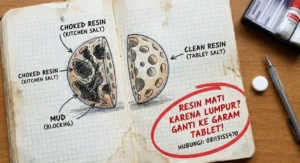 CHOKED RESIN
(KITCHEN SALT)
CHOKED RESIN
(KITCHEN SALT)
MUD
(BLOCKHG)
CLEAN RESIN
(TABLET SALT)
RESIN MATI
KARENA LUMPUR?
GANTI KE GARAM
TABLET!
HUBUNGI: 08113155470